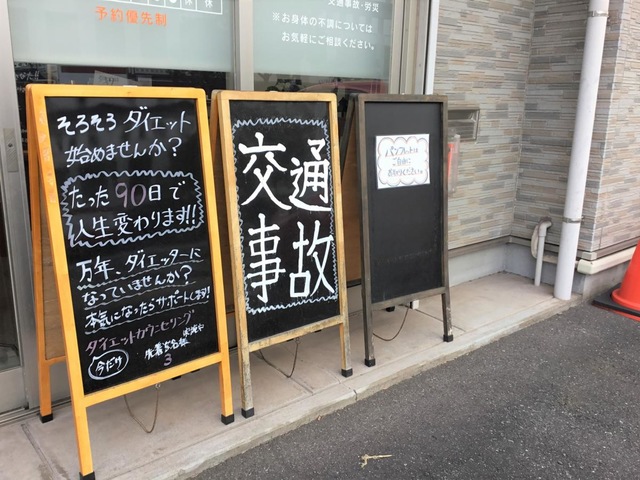 予約優先制
交通事故・労災
※お身体の不調については
お気軽にご相談ください。
そろそろ ダイエット
始めませんか?
たった90日で
人生変わります!!
万年、ダイエッターに
なっていませんか?
本気になったらサポートします!
ダイエットカウンセリング
今だけ
先着5名様
3
交通
事故
パンフレット
ご自由に
お取りください